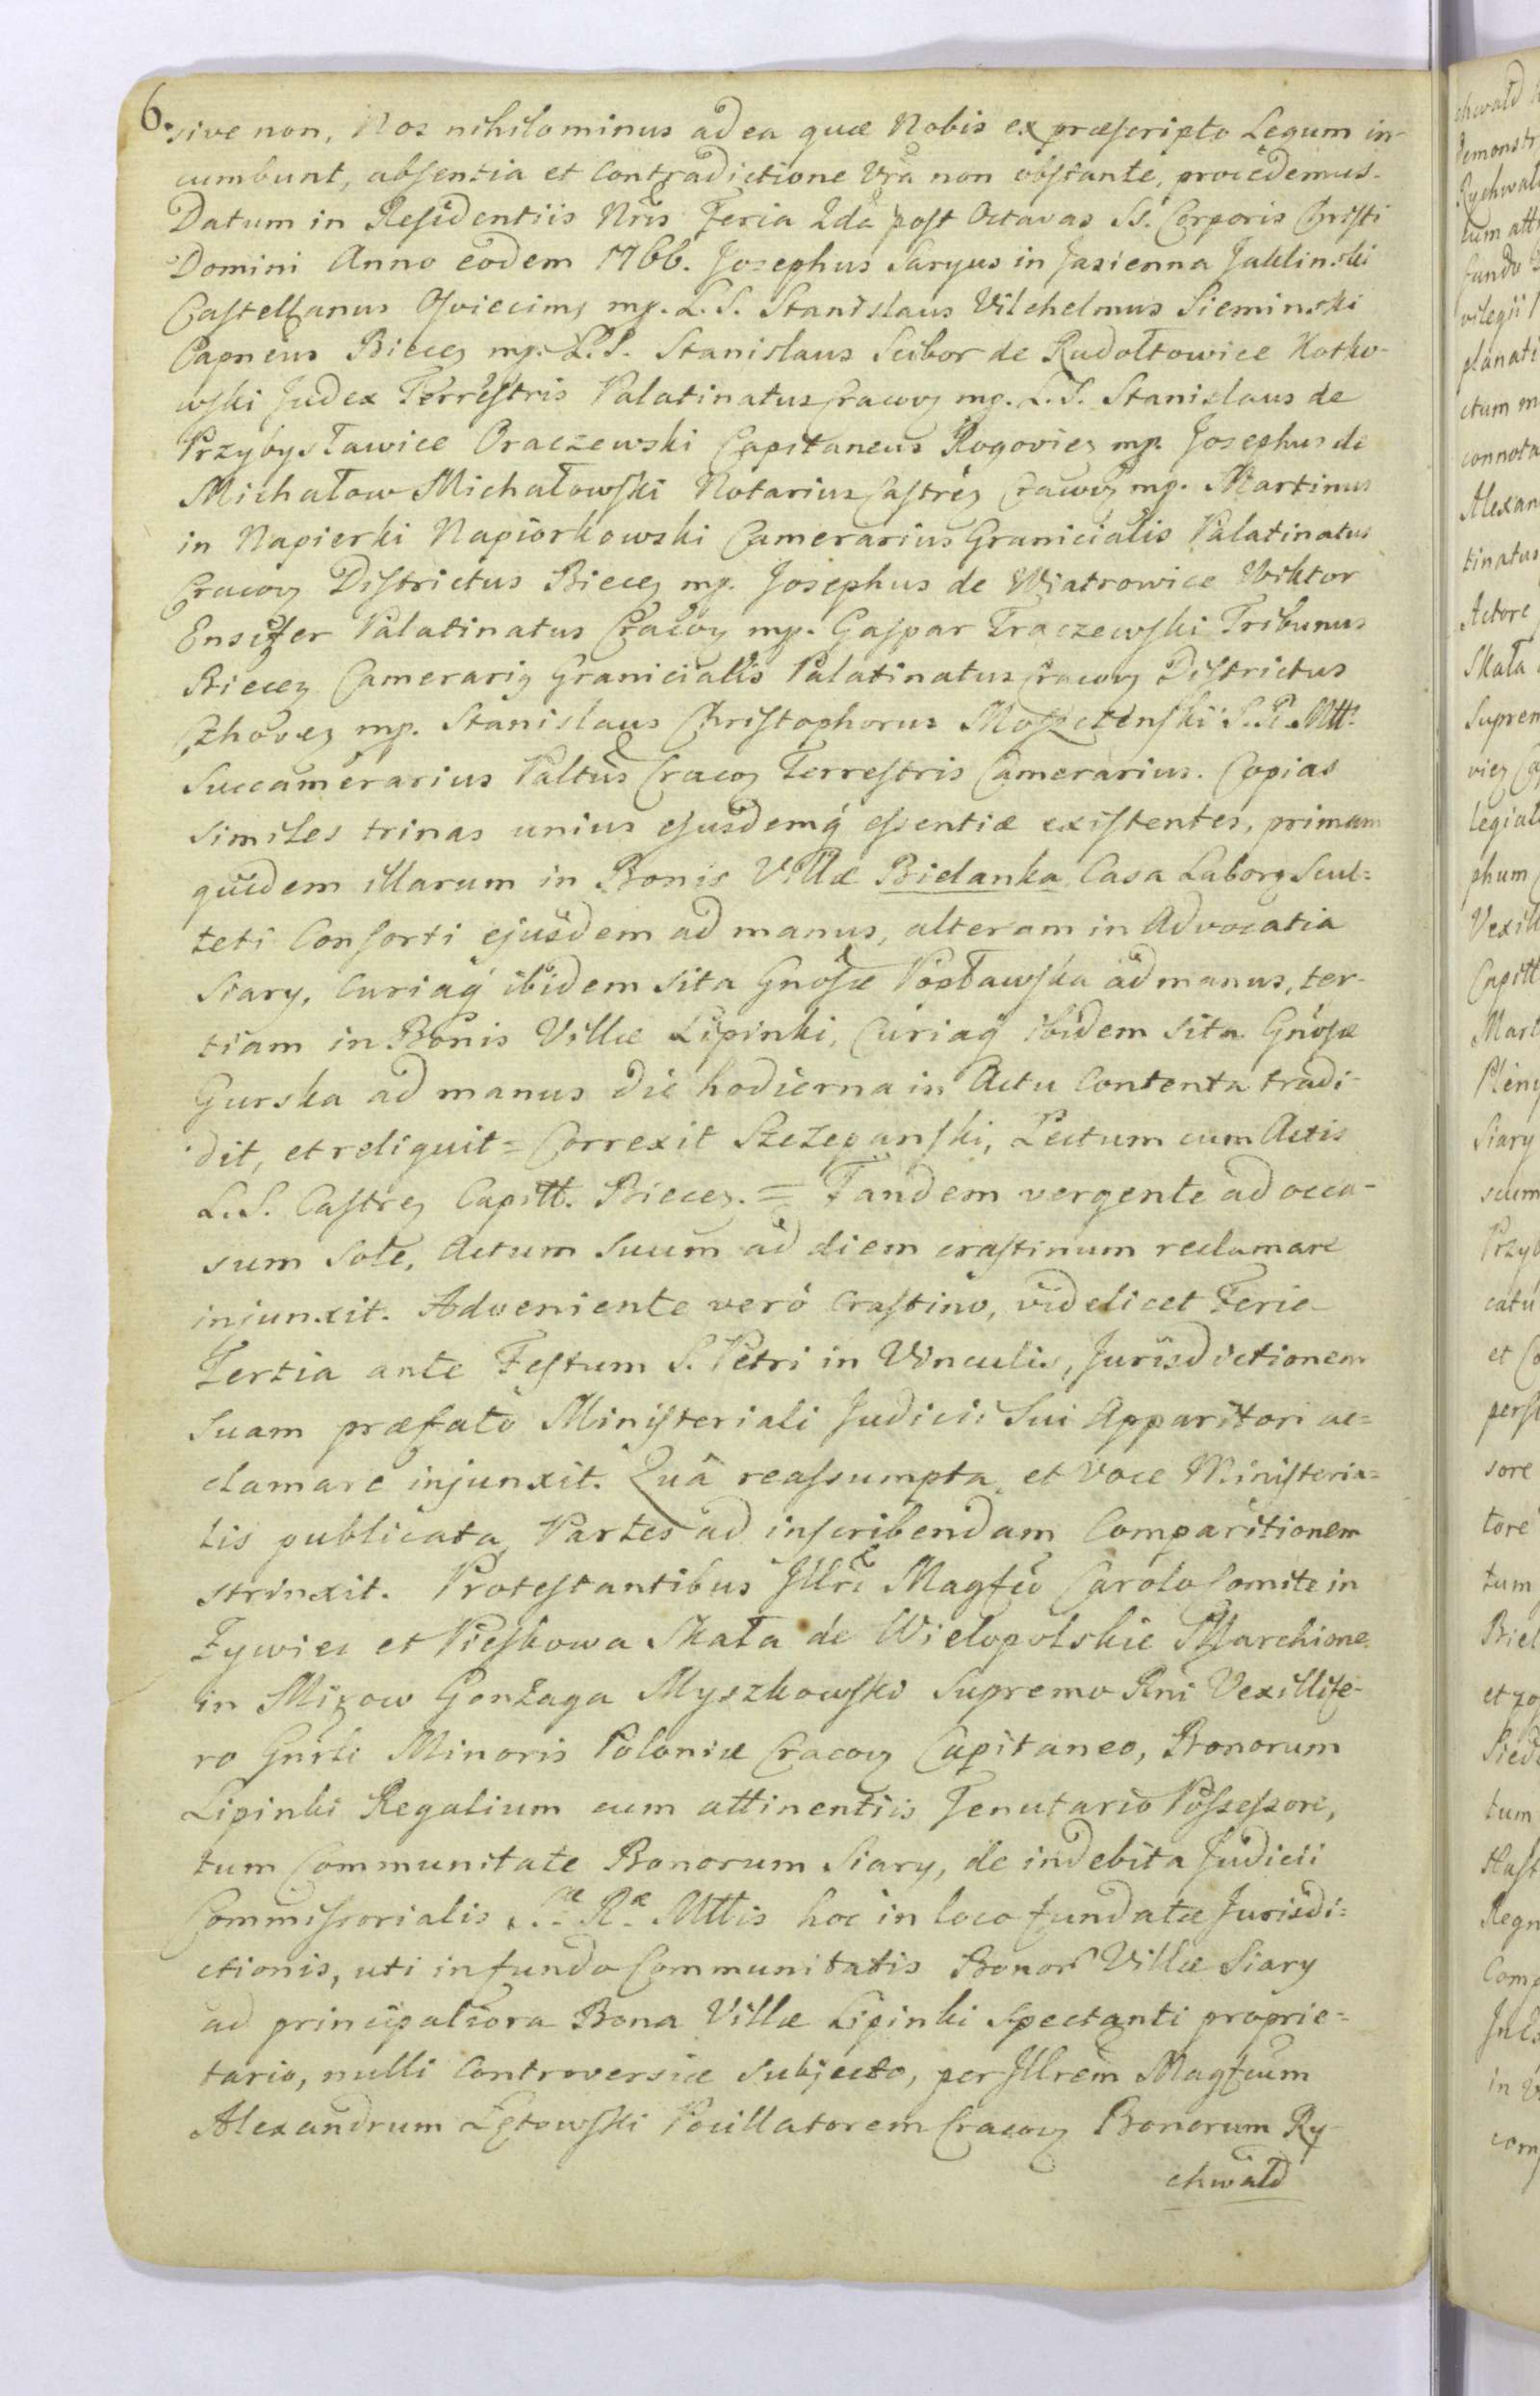 6.
sive non, Nos nihilominus ad ea quæ Nobis ex præscripto Legum in-
cumbunt, absentia et Contradictione Vrã non obstante, procedemus.
Datum in Residentiis Nris Feria 2da post Octavas SS. Corporis Christi
Domini Anno eodem 1766. Josephus Saryus in Jasienna Jaklinski
Castellanus Osviecimz mp. L. S. Stanislaus Vilchelmus Sieminski
Capneus Biecez mp. L.S. Stanislaus Scibor de Rudołtowice Kotko-
wski Judex Terrestris Palatinatus Cracov mp. L.S. Stanislaus de
Przybysławice Oraczewski Capitaneus Rogoviez mp. Josephus de
Michałow Michałowski Notarius Castrez Cracov mp. Martinus
in Napierki Napiorkowski Camerarius Granicialis Palatinatus
Cracov Districtus Biecez mp. Josephus de Wiatrowice Wiktor
Ensifer Palatinatus Cracov mp. Gaspar Traczewski Tribunus
Biecez Camerariq Granicialis Palatinatus Cracov Districtus
Czhovez mp. Stanislaus Christophorus Moszczenski S. R. Mtt.
Succamerarius Paltus Cracov Terrestris Camerarius. Copias
similes trinas unius ejusdemq́ essentiæ existentes, primam
quidem illarum in Bonis Villæ Bielanka Casa Laborz Scul=
teti Consorti ejusdem ad manus, alteram in Advocatia
Siary, Curiaq́ ibidem sita Gnosæ Popławska ad manus, ter-
tiam in Bonis Villæ Lipinki, Curiaq́ ibidem sita Gnosæ
Gurska ad manus die hodierna in Actu Contenta tradi-
dit, et reliquit = Correxit Szczepanski, Lectum cum Actis
L. S. Castrez Capitt. Biecez. = Tandem vergente ad occa-
sum Sole, Actum Suum ad diem crastinum reclamare
injunxit. Adveniente veró Crastino, videlicet Feria
Tertia ante Festum S. Petri in Vinculis, Jurisdictionem
Suam præfato Ministeriali Judicii Sui Apparitori ac=
clamare injunxit. Quâ reassumpta, et Voce Ministeria=
lis publicata, Partes ad inscribendam Comparitionem
strinxit. Protestantibus Illri Magfco Carolo Comite in
Zywiec et Pieskowa Skała de Wielopolskie Marchione
in Mirow Gonzaga Myszkowski Supremo Rni Vexillife-
ro Gnrli Minoris Poloniæ Cracov Capitaneo, Bonorum
Lipinki Regalium cum attinentiis Tenutario Possessore,
tum Communitate Bonorum Siary, de indebita Judicii
Commissorialis S.æ R.æ Mttis hoc in loco fundatæ Jurisdi=
ctionis, uti in fundo Communitatis Bonor Villæ Siary
ad principaliora Bona Villæ Lipinki Spectanti proprie=
tario, nulli Controversiæ subjecto, per Illrem Magfcum
Alexandrum Łętowski Pocillatorem Cracov Bonorum Ry-
chwałd